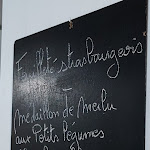 Feuilleté strasbourgeois
—
médaillon de merlu
aux petits légumes